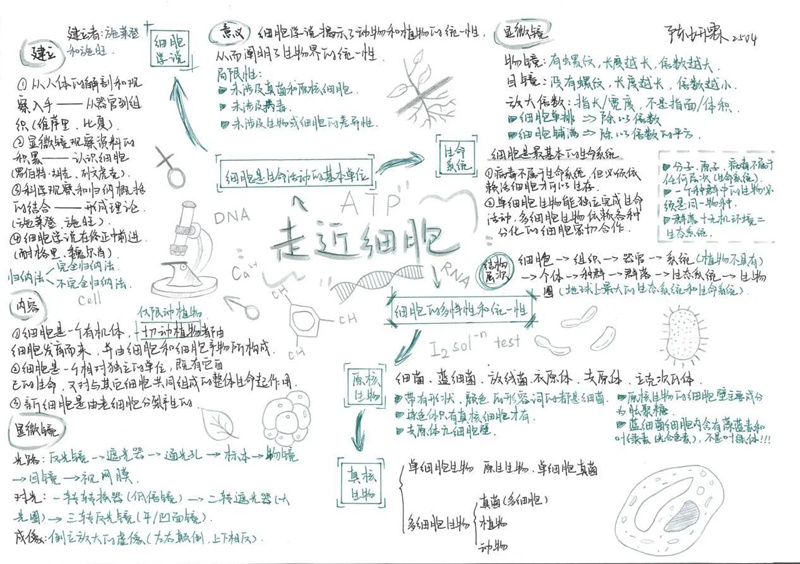 建立
建立者:施莱登
和施旺.
①从人体的解剖和观
察入手——从器官到组
织(维萨里、比夏)
②显微镜观察资料的
积累——认识细胞
(罗伯特·胡克、列文虎克).
③科学观察和归纳概括
的结合——形成理论
(施莱登、施旺).
④细胞学说在修正中前进
(耐格里、魏尔肖)
归纳法
完全归纳法
不完全归纳法
cell
细胞
学说
意义
细胞学说揭示了动物和植物的统一性,
从而阐明了生物界的统一性
局限性:
未涉及真菌和原核细胞.
未涉及病毒.
未涉及生物或细胞的差异性
显微镜
2504
物镜:有螺纹,长度越长,倍数越大.
目镜:没有螺纹,长度越长,倍数越小.
放大倍数:指长/宽度,不是指面/体积.
细胞单排 → 除以倍数
细胞铺满 → 除以倍数的平方
细胞是生命活动的基本单位
生命
系统
细胞是最基本的生命系统
①病毒不属于生命系统,但必须依
赖活细胞才可以生存.
②单细胞生物能独立完成生命
活动,多细胞生物依赖各种
分化的细胞密切合作.
分子、原子、病毒不属于
任何层次(生命系统).
一个种群中的生物必
须是同一物种.
群落+无机环境=
生态系统.
DNA
ATP
走近细胞
RNA
CaH
CH
CH
结构
层次
细胞→组织→器官→系统(植物不具有)
→个体→种群→群落→生态系统→生物
圈(地球上最大的生态系统和生命系统).
细胞的多样性和统一性
I₂ sol-n test
内容
仅限动植物
①细胞是一个有机体,一切动植物都由
细胞发育而来,并由细胞和细胞产物所构成.
②细胞是一个相对独立的单位,既有它自
己的生命,又对与其它细胞共同组成的整体生命起作用
③新细胞是由老细胞分裂产生的
显微镜
光路:反光镜→遮光器→通光孔→标本→物镜
→目镜→视网膜.
对光:一转转换器(低倍镜)→二转遮光器(大
光圈)→三转反光镜(平/凹面镜).
成像:倒立放大的虚像(左右颠倒,上下相反).
原核
生物
细菌、蓝细菌、放线菌、衣原体、支原体、立克次氏体
带有形状、颜色的形容词的都是细菌.
染色体只有真核细胞才有
支原体无细胞壁.
原核生物的细胞壁主要成分
为肽聚糖
蓝细菌细胞内含有藻蓝素和
叶绿素(光合色素),不是叶绿体!!!
真核
生物
单细胞生物 原生生物、单细胞真菌
多细胞生物
真菌(多细胞)
植物
动物